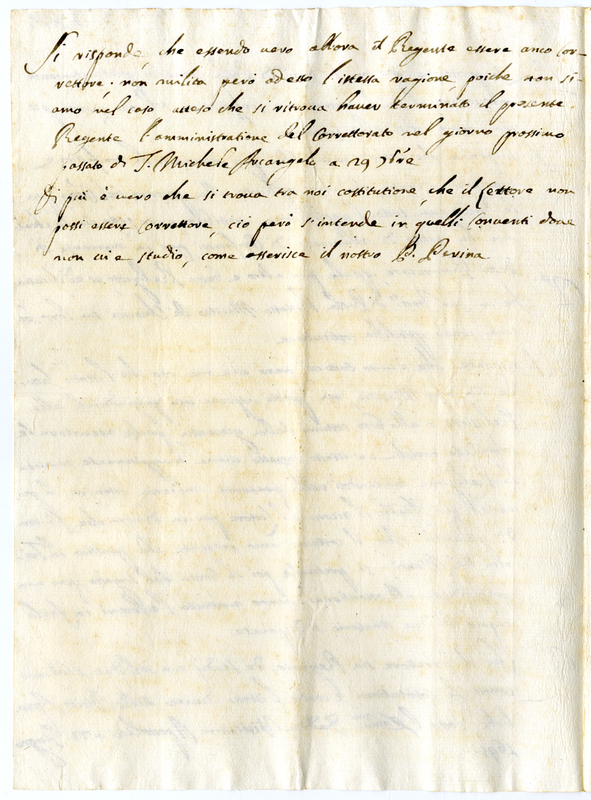 Si risponde, che essendo vero allora il Regente essere anco cor-
rettore. non milita però adesso l'istessa ragione, poiche non si-
amo nel caso atteso che si ritrova haver terminato il presente
Regente l'amministratione del Correttorato nel giorno prossimo
passato di S. Michele Arcangelo a 29 7bre
Di più è vero che si trova tra noi costitutione, che il Lettore non
possi essere Correttore, ciò però s'intende in quelli conventi dove
non vi e studio, come asserisce il nostro P. Perina